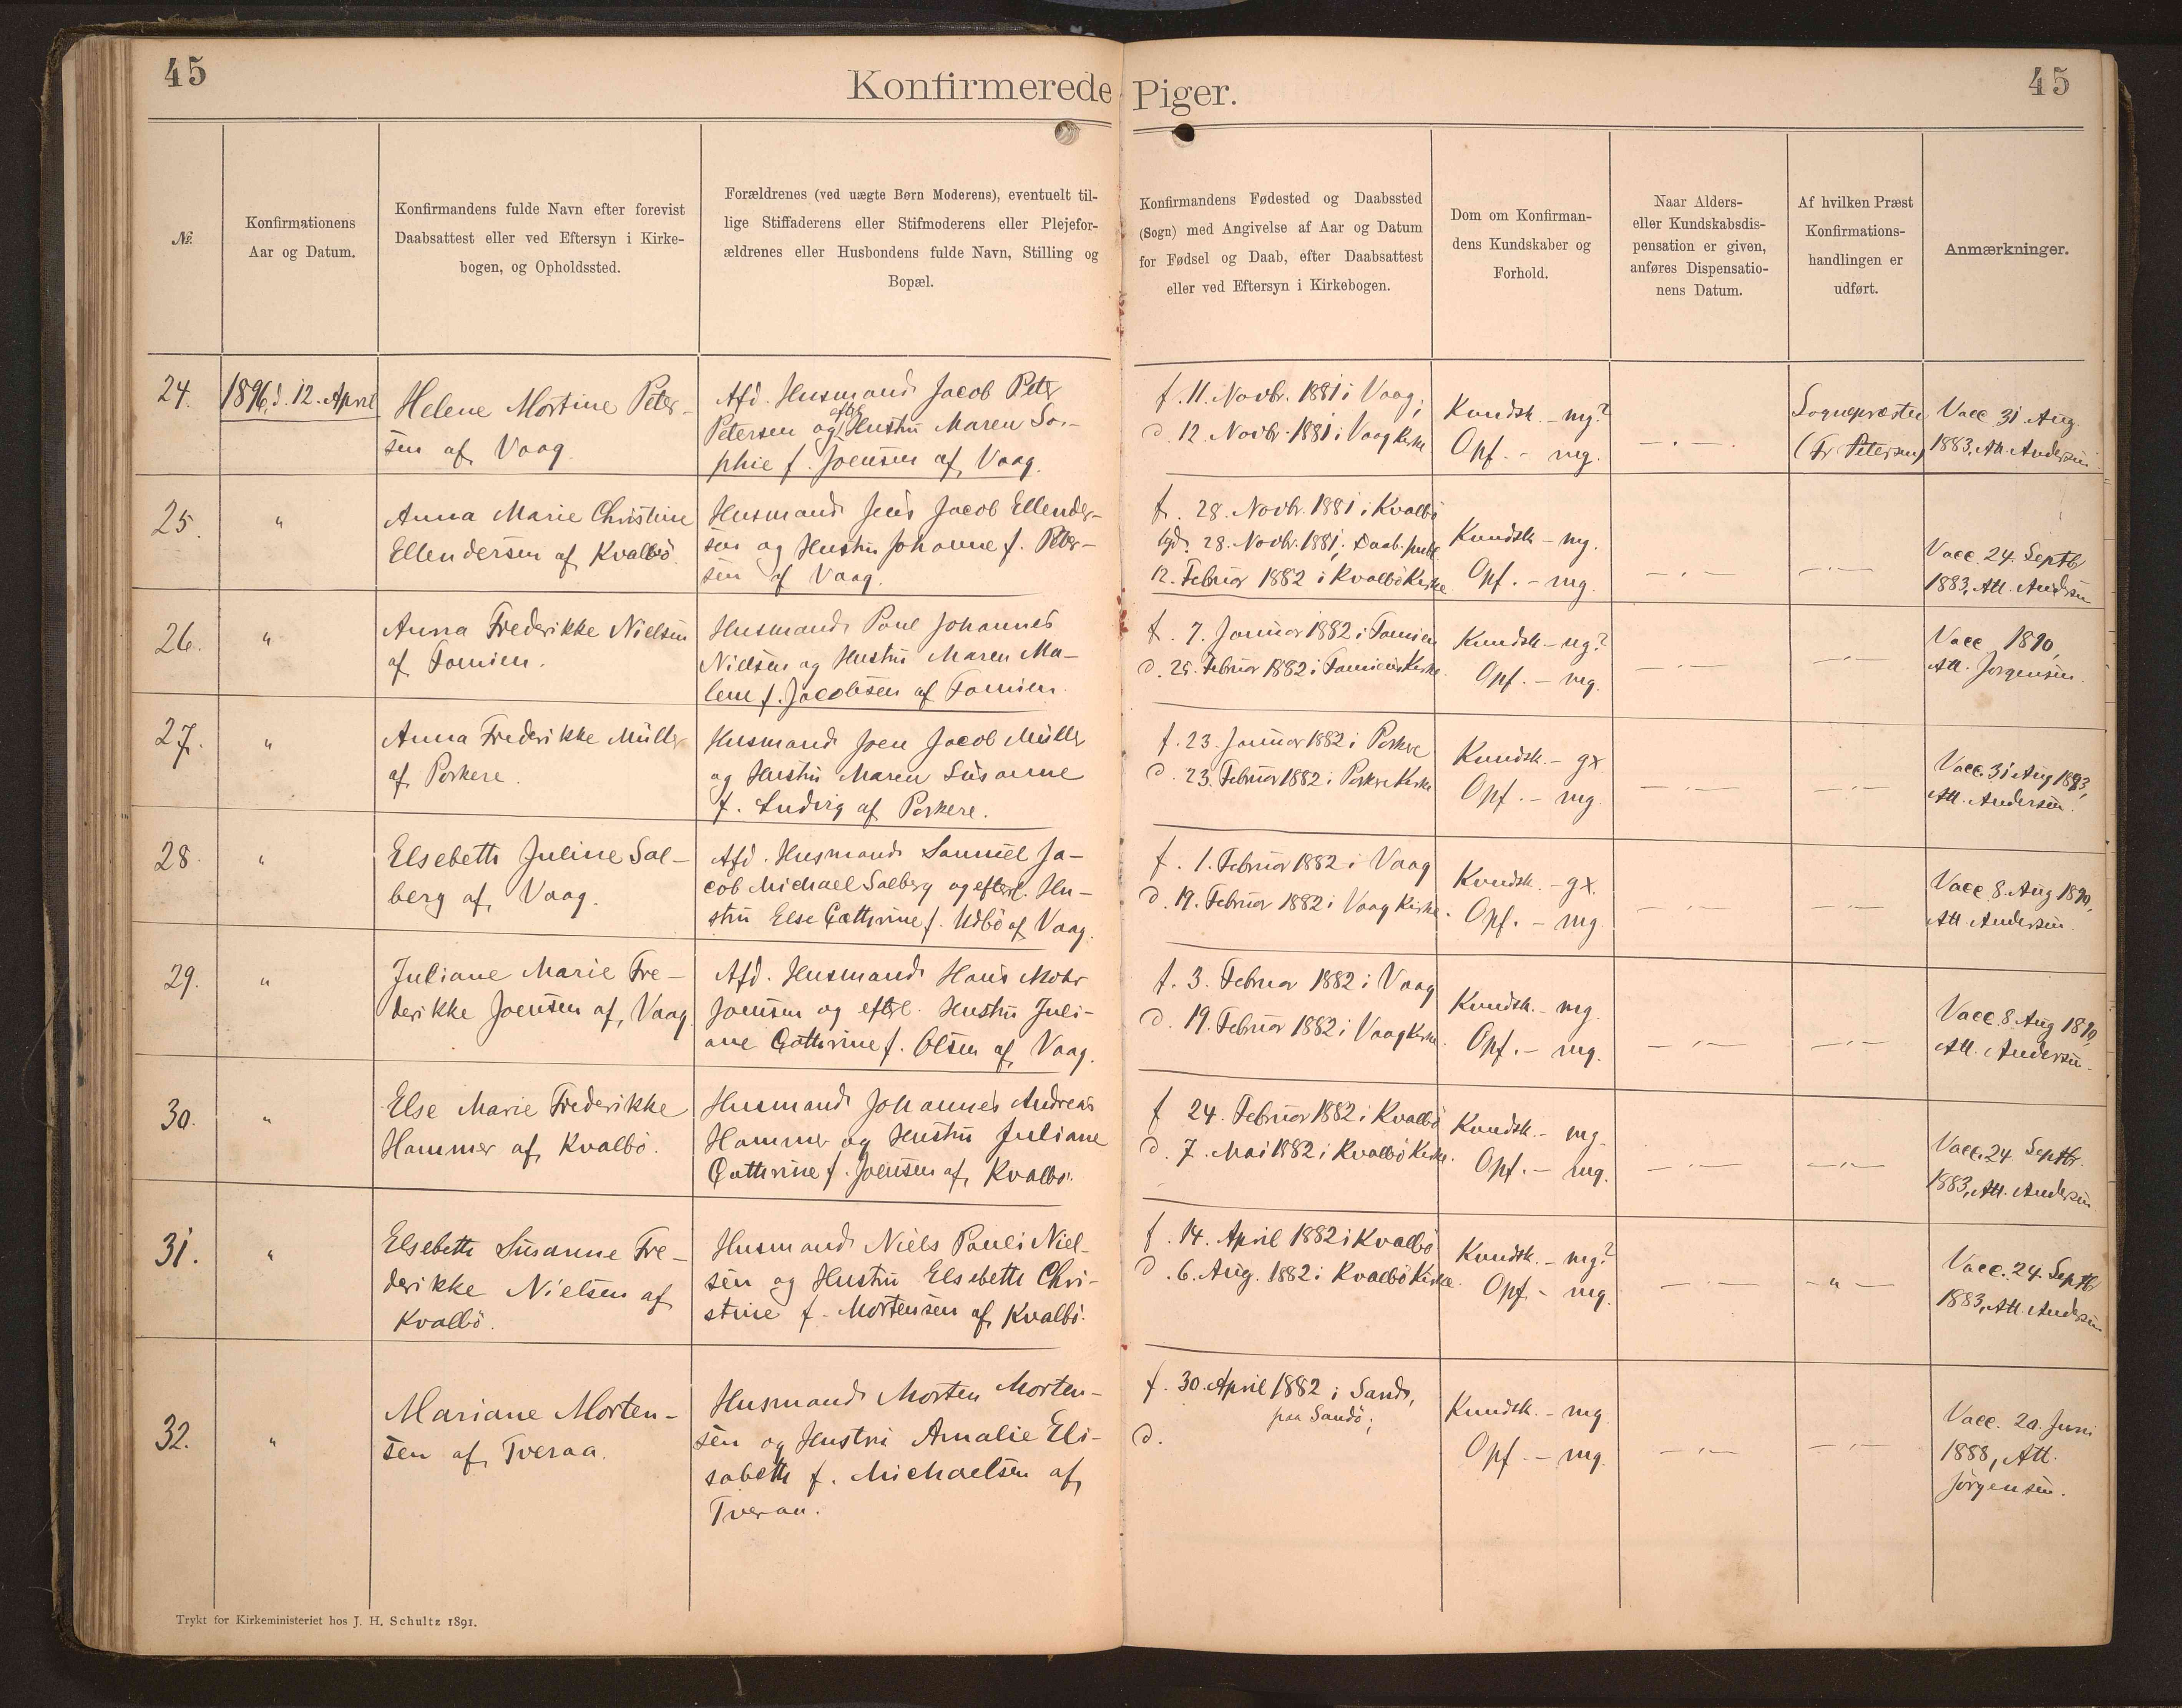 45
45
Konfirmerede Piger.
№.
Konfirmationens
Aar og Datum.
Konfirmandens fulde Navn efter forevist
Daabsattest eller ved Eftersyn i Kirke-
bogen, og Opholdssted.
Forældrenes (ved uægte Børn Moderens), eventuelt til-
lige Stiffaderens eller Stifmoderens eller Plejefor-
ældrenes eller Husbondens fulde Navn, Stilling og
Bopæl.
Konfirmandens Fødested og Daabssted
(Sogn) med Angivelse af Aar og Datum
for Fødsel og Daab, efter Daabsattest
eller ved Eftersyn i Kirkebogen.
Dom om Konfirman-
dens Kundskaber og
Forhold.
Naar Alders-
eller Kundskabsdis-
pensation er given,
anføres Dispensatio-
nens Datum.
Af hvilken Præst
Konfirmations-
handlingen er
udført.
Anmærkninger.
24.
1896, d. 12. April
Helene Mortine Peter-
sen af Vaag.
Afd. Husmand Jacob Peter
Petersen og efterl. Hustru Maren So-
phie f. Joensen af Vaag.
f. 11. Novbr. 1881 i Vaag;
d. 12. Novbr. 1881 i Vaag Kirke
Kundsk. - mg?
Opf. - mg.
— . —
Sognepræsten
(Fr Petersen)
Vacc 31 Aug.
1883, Att. Andersen
25.
"
Anna Marie Christine
Ellendersen af Kvalbö.
Husmand Jens Jacob Ellender-
sen og Hustru Johanne f. Peter-
sen af Vaag.
f. 28. Novbr. 1881 i Kvalbö
hjd. 28. Novbr. 1881; Daab. publ.
12. Februar 1882 i Kvalbö Kirke
Kundsk - mg.
Opf. - mg
— . —
— . —
Vacc. 24. Septb
1883, Att. Andersen
26.
"
Anna Frederikke Nielsen
af Famien.
Husmand Poul Johannes
Nielsen og Hustru Maren Ma-
lene f. Jacobsen af Famien.
f. 7. Januar 1882 i Famien
d. 25. Februar 1882 i Famiens Kirke.
Kundsk - mg?
Opf. - mg.
— . —
— . —
Vacc 1890,
Att. Jörgensen.
27.
"
Anna Frederikke Müller
af Porkere.
Husmand Joen Jacob Müller
og Hustru Maren Susanne
f. Ludvig af Porkere.
f. 23. Januar 1882 i Porkere
d. 23. Februar 1882 i Porkere Kirke
Kundsk. - gx.
Opf. - mg.
— . —
— . —
Vacc. 31 Aug 1883,
Att. Andersen.
28.
"
Elsebeth Juline Sal-
berg af Vaag.
Afd. Husmand Samuel Ja-
cob Michael Salberg og efterl. Hu-
stru Else Cathrine f. Udbö af Vaag.
f. 1. Februar 1882 i Vaag
d. 19. Februar 1882 i Vaag Kirke.
Kundsk. - gx.
Opf. - mg
— . —
— . —
Vacc 8. Aug 1890,
Att Andersen.
29.
"
Juliane Marie Fre-
derikke Joensen af Vaag.
Afd. Husmand Hans Mohr
Joensen og efterl. Hustru Juli-
ane Cathrine f. Olsen af Vaag.
f. 3. Februar 1882 i Vaag
d. 19. Februar 1882 i Vaag Kirke.
Kundsk. - mg.
Opf. - mg.
— . —
— . —
Vacc. 8 Aug 1890,
Att. Andersen.
30.
"
Else Marie Frederikke
Hammer af Kvalbö.
Husmand Johannes Andreas
Hammer og Hustru Juliane
Cathrine f. Joensen af Kvalbö.
f 24. Februar 1882 i Kvalbö
d. 7. Mai 1882 i Kvalbö Kirke.
Kundsk. - mg.
Opf. - mg.
— . —
— . —
Vacc. 24. Septbr.
1883, Att. Andersen
31.
"
Elsebeth Susanne Fre-
derikke Nielsen af
Kvalbö.
Husmand Niels Pauli Niel-
sen og Hustru Elsebeth Chri-
stine f. Mortensen af Kvalbö.
f. 14. April 1882 i Kvalbö
d. 6. Aug. 1882 i Kvalbö Kirke.
Kundsk. - mg?
Opf. - mg.
— . —
— " —
Vacc. 24. Septb
1883, Att. Andersen
32.
"
Mariane Morten-
sen af Tveraa.
Husmand Morten Morten-
sen og Hustru Amalie Eli-
sabeth f. Michaelsen af
Tveraa.
f. 30. April 1882 i Sand,
paa Sandö;
d.
Kundsk. - mg
Opf. - mg.
— . —
— . —
Vacc. 20. Juni
1888, Att.
Jörgensen.
Trykt for Kirkeministeriet hos J. H. Schultz 1891.